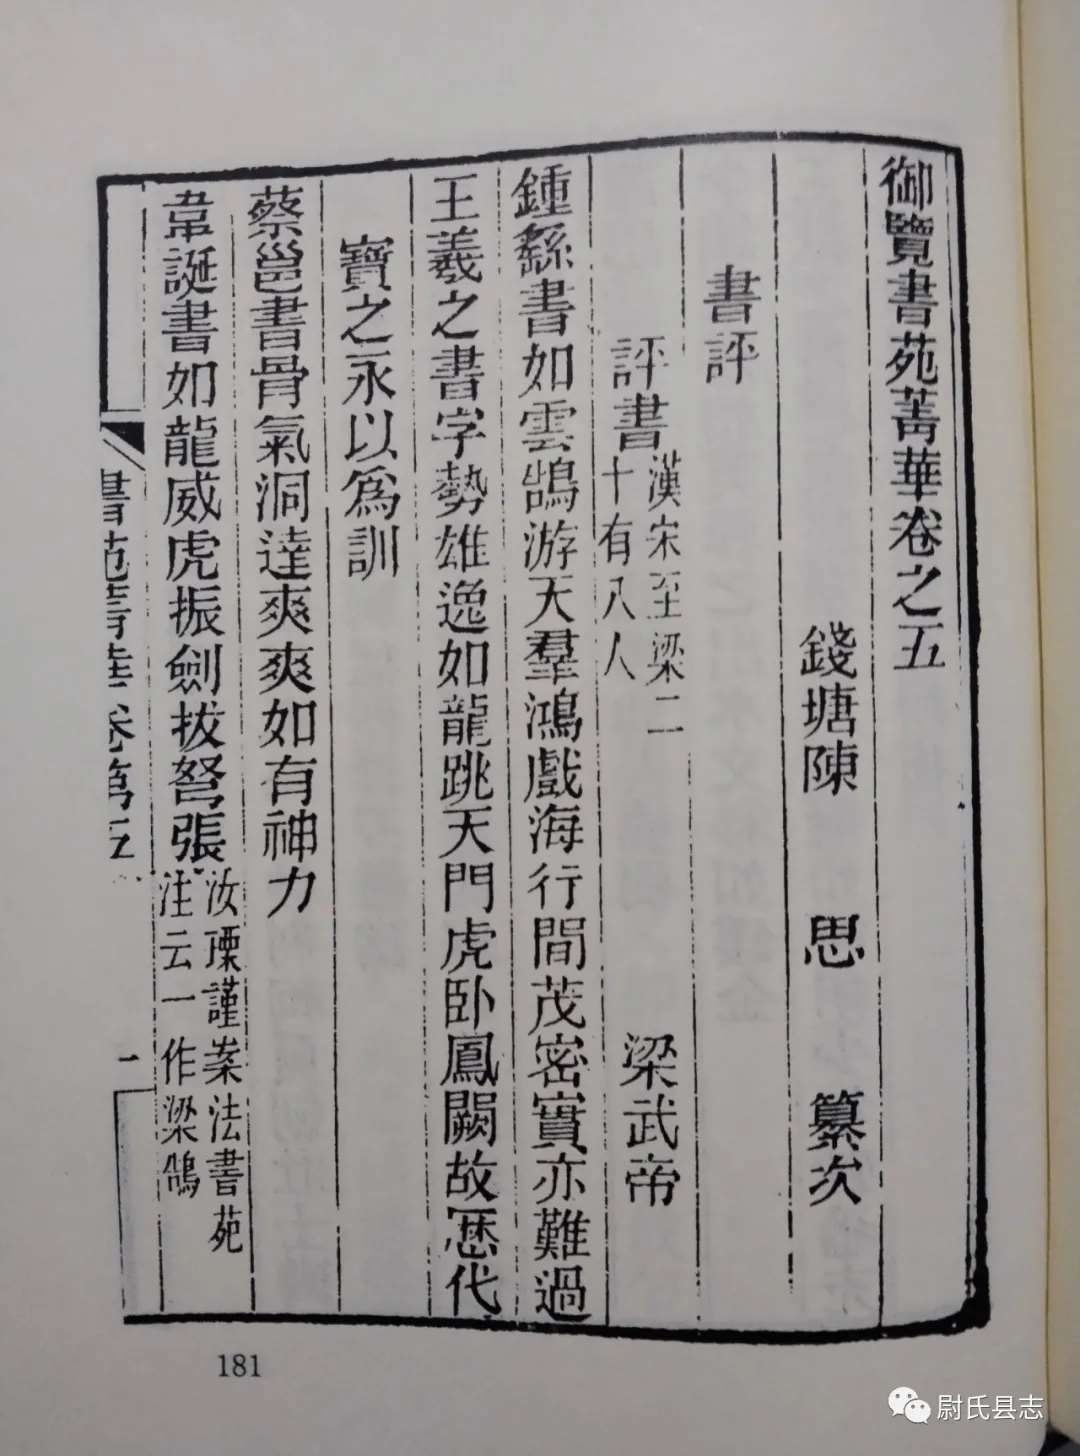 御覽書苑菁華卷之五
錢塘陳　思　纂次
書評
評書漢宋至梁二十有八人　梁武帝
鍾繇書如雲鵠游天羣鴻戲海行間茂密實亦難過
王羲之書字勢雄逸如龍跳天門虎卧鳳闕故歷代
寶之永以為訓
蔡邕書骨氣洞達爽爽如有神力
韋誕書如龍威虎振劍拔弩張汝瑮謹案法書苑注云一作梁鵠
書苑菁華卷第五
一
181
尉氏县志